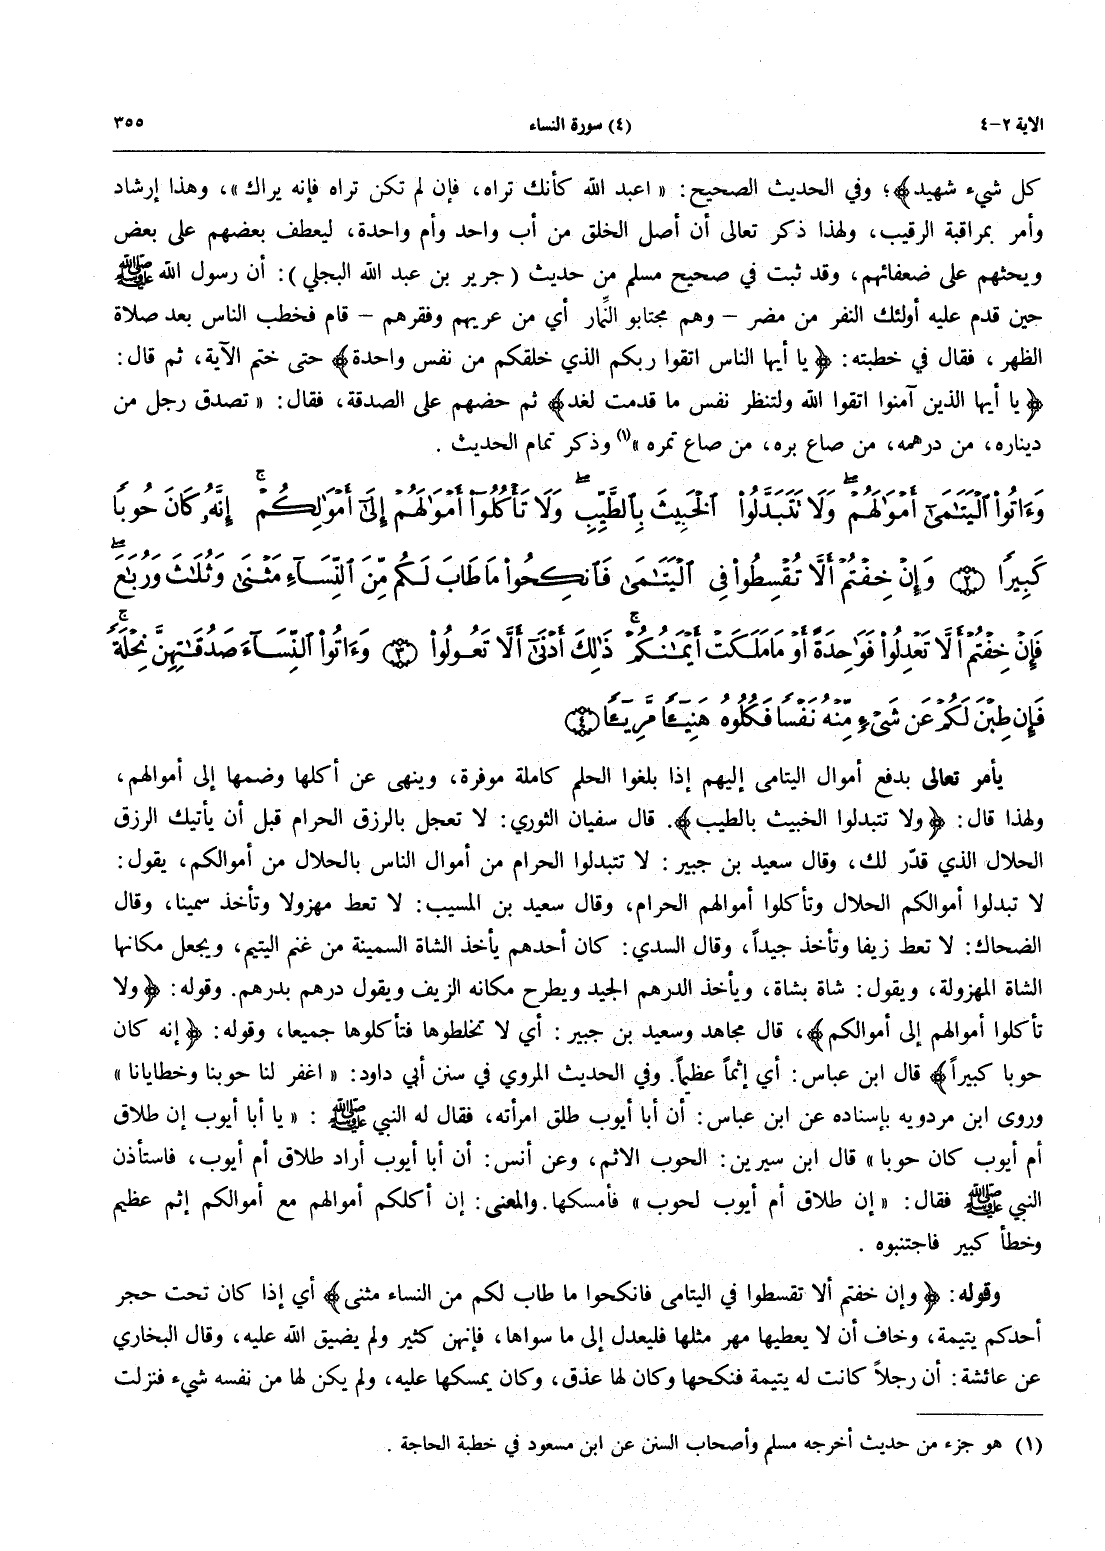 الآية ٢-٤ (٤) سورة النساء ٣٥٥
كل شيء شهيد﴾؛ وفي الحديث الصحيح: « اعبد الله كأنك تراه، فإن لم تكن تراه فإنه يراك»، وهذا إرشاد
وأمر بمراقبة الرقيب، ولهذا ذكر تعالى أن أصل الخلق من أب واحد وأم واحدة، ليعطف بعضهم على بعض
ويحثهم على ضعفائهم، وقد ثبت في صحيح مسلم من حديث (جرير بن عبد الله البجلي): أن رسول الله ﷺ
حين قدم عليه أولئك النفر من مضر – وهم مجتابو النِّمار أي من عريهم وفقرهم – قام فخطب الناس بعد صلاة
الظهر ، فقال في خطبته: ﴿ يا أيها الناس اتقوا ربكم الذي خلقكم من نفس واحدة﴾ حتى ختم الآية، ثم قال:
﴿ يا أيها الذين آمنوا اتقوا الله ولتنظر نفس ما قدمت لغد﴾ ثم حضهم على الصدقة، فقال: « تصدق رجل من
ديناره، من درهمه، من صاع بره، من صاع تمره »(١) وذكر تمام الحديث .
وَءَاتُوا۟ ٱلْيَتَـٰمَىٰٓ أَمْوَٰلَهُمْ ۖ وَلَا تَتَبَدَّلُوا۟ ٱلْخَبِيثَ بِٱلطَّيِّبِ ۖ وَلَا تَأْكُلُوٓا۟ أَمْوَٰلَهُمْ إِلَىٰٓ أَمْوَٰلِكُمْ ۚ إِنَّهُۥ كَانَ حُوبًا
كَبِيرًا ﴿٢﴾ وَإِنْ خِفْتُمْ أَلَّا تُقْسِطُوا۟ فِى ٱلْيَتَـٰمَىٰ فَٱنكِحُوا۟ مَا طَابَ لَكُم مِّنَ ٱلنِّسَآءِ مَثْنَىٰ وَثُلَـٰثَ وَرُبَـٰعَ ۖ
فَإِنْ خِفْتُمْ أَلَّا تَعْدِلُوا۟ فَوَٰحِدَةً أَوْ مَا مَلَكَتْ أَيْمَـٰنُكُمْ ۚ ذَٰلِكَ أَدْنَىٰٓ أَلَّا تَعُولُوا۟ ﴿٣﴾ وَءَاتُوا۟ ٱلنِّسَآءَ صَدُقَـٰتِهِنَّ نِحْلَةً ۚ
فَإِن طِبْنَ لَكُمْ عَن شَىْءٍ مِّنْهُ نَفْسًا فَكُلُوهُ هَنِيٓـًٔا مَّرِيٓـًٔا ﴿٤﴾
يأمر تعالى بدفع أموال اليتامى إليهم إذا بلغوا الحلم كاملة موفرة، وينهى عن أكلها وضمها إلى أموالهم،
ولهذا قال: ﴿ ولا تتبدلوا الخبيث بالطيب﴾. قال سفيان الثوري: لا تعجل بالرزق الحرام قبل أن يأتيك الرزق
الحلال الذي قدّر لك، وقال سعيد بن جبير : لا تتبدلوا الحرام من أموال الناس بالحلال من أموالكم، يقول:
لا تبدلوا أموالكم الحلال وتأكلوا أموالهم الحرام، وقال سعيد بن المسيب: لا تعط مهزولا وتأخذ سمينا، وقال
الضحاك: لا تعط زيفا وتأخذ جيداً، وقال السدي: كان أحدهم يأخذ الشاة السمينة من غنم اليتيم، ويجعل مكانها
الشاة المهزولة، ويقول: شاة بشاة، ويأخذ الدرهم الجيد ويطرح مكانه الزيف ويقول درهم بدرهم. وقوله: ﴿ ولا
تأكلوا أموالهم إلى أموالكم﴾، قال مجاهد وسعيد بن جبير : أي لا تخلطوها فتأكلوها جميعا، وقوله: ﴿ إنه كان
حوبا كبيراً﴾ قال ابن عباس: أي إثماً عظيماً. وفي الحديث المروي في سنن أبي داود: « اغفر لنا حوبنا وخطايانا »
وروى ابن مردويه بإسناده عن ابن عباس: أن أبا أيوب طلق امرأته، فقال له النبي ﷺ : « يا أبا أيوب إن طلاق
أم أيوب كان حوبا » قال ابن سيرين: الحوب الاثم، وعن أنس: أن أبا أيوب أراد طلاق أم أيوب، فاستأذن
النبي ﷺ فقال: « إن طلاق أم أيوب لحوب » فأمسكها. والمعنى: إن أكلكم أموالهم مع أموالكم إثم عظيم
وخطأ كبير فاجتنبوه .
وقوله: ﴿ وإن خفتم ألا تقسطوا في اليتامى فانكحوا ما طاب لكم من النساء مثنى﴾ أي إذا كان تحت حجر
أحدكم يتيمة، وخاف أن لا يعطيها مهر مثلها فليعدل إلى ما سواها، فإنهن كثير ولم يضيق الله عليه، وقال البخاري
عن عائشة: أن رجلاً كانت له يتيمة فنكحها وكان لها عذق، وكان يمسكها عليه، ولم يكن لها من نفسه شيء فنزلت
(١) هو جزء من حديث أخرجه مسلم وأصحاب السنن عن ابن مسعود في خطبة الحاجة .